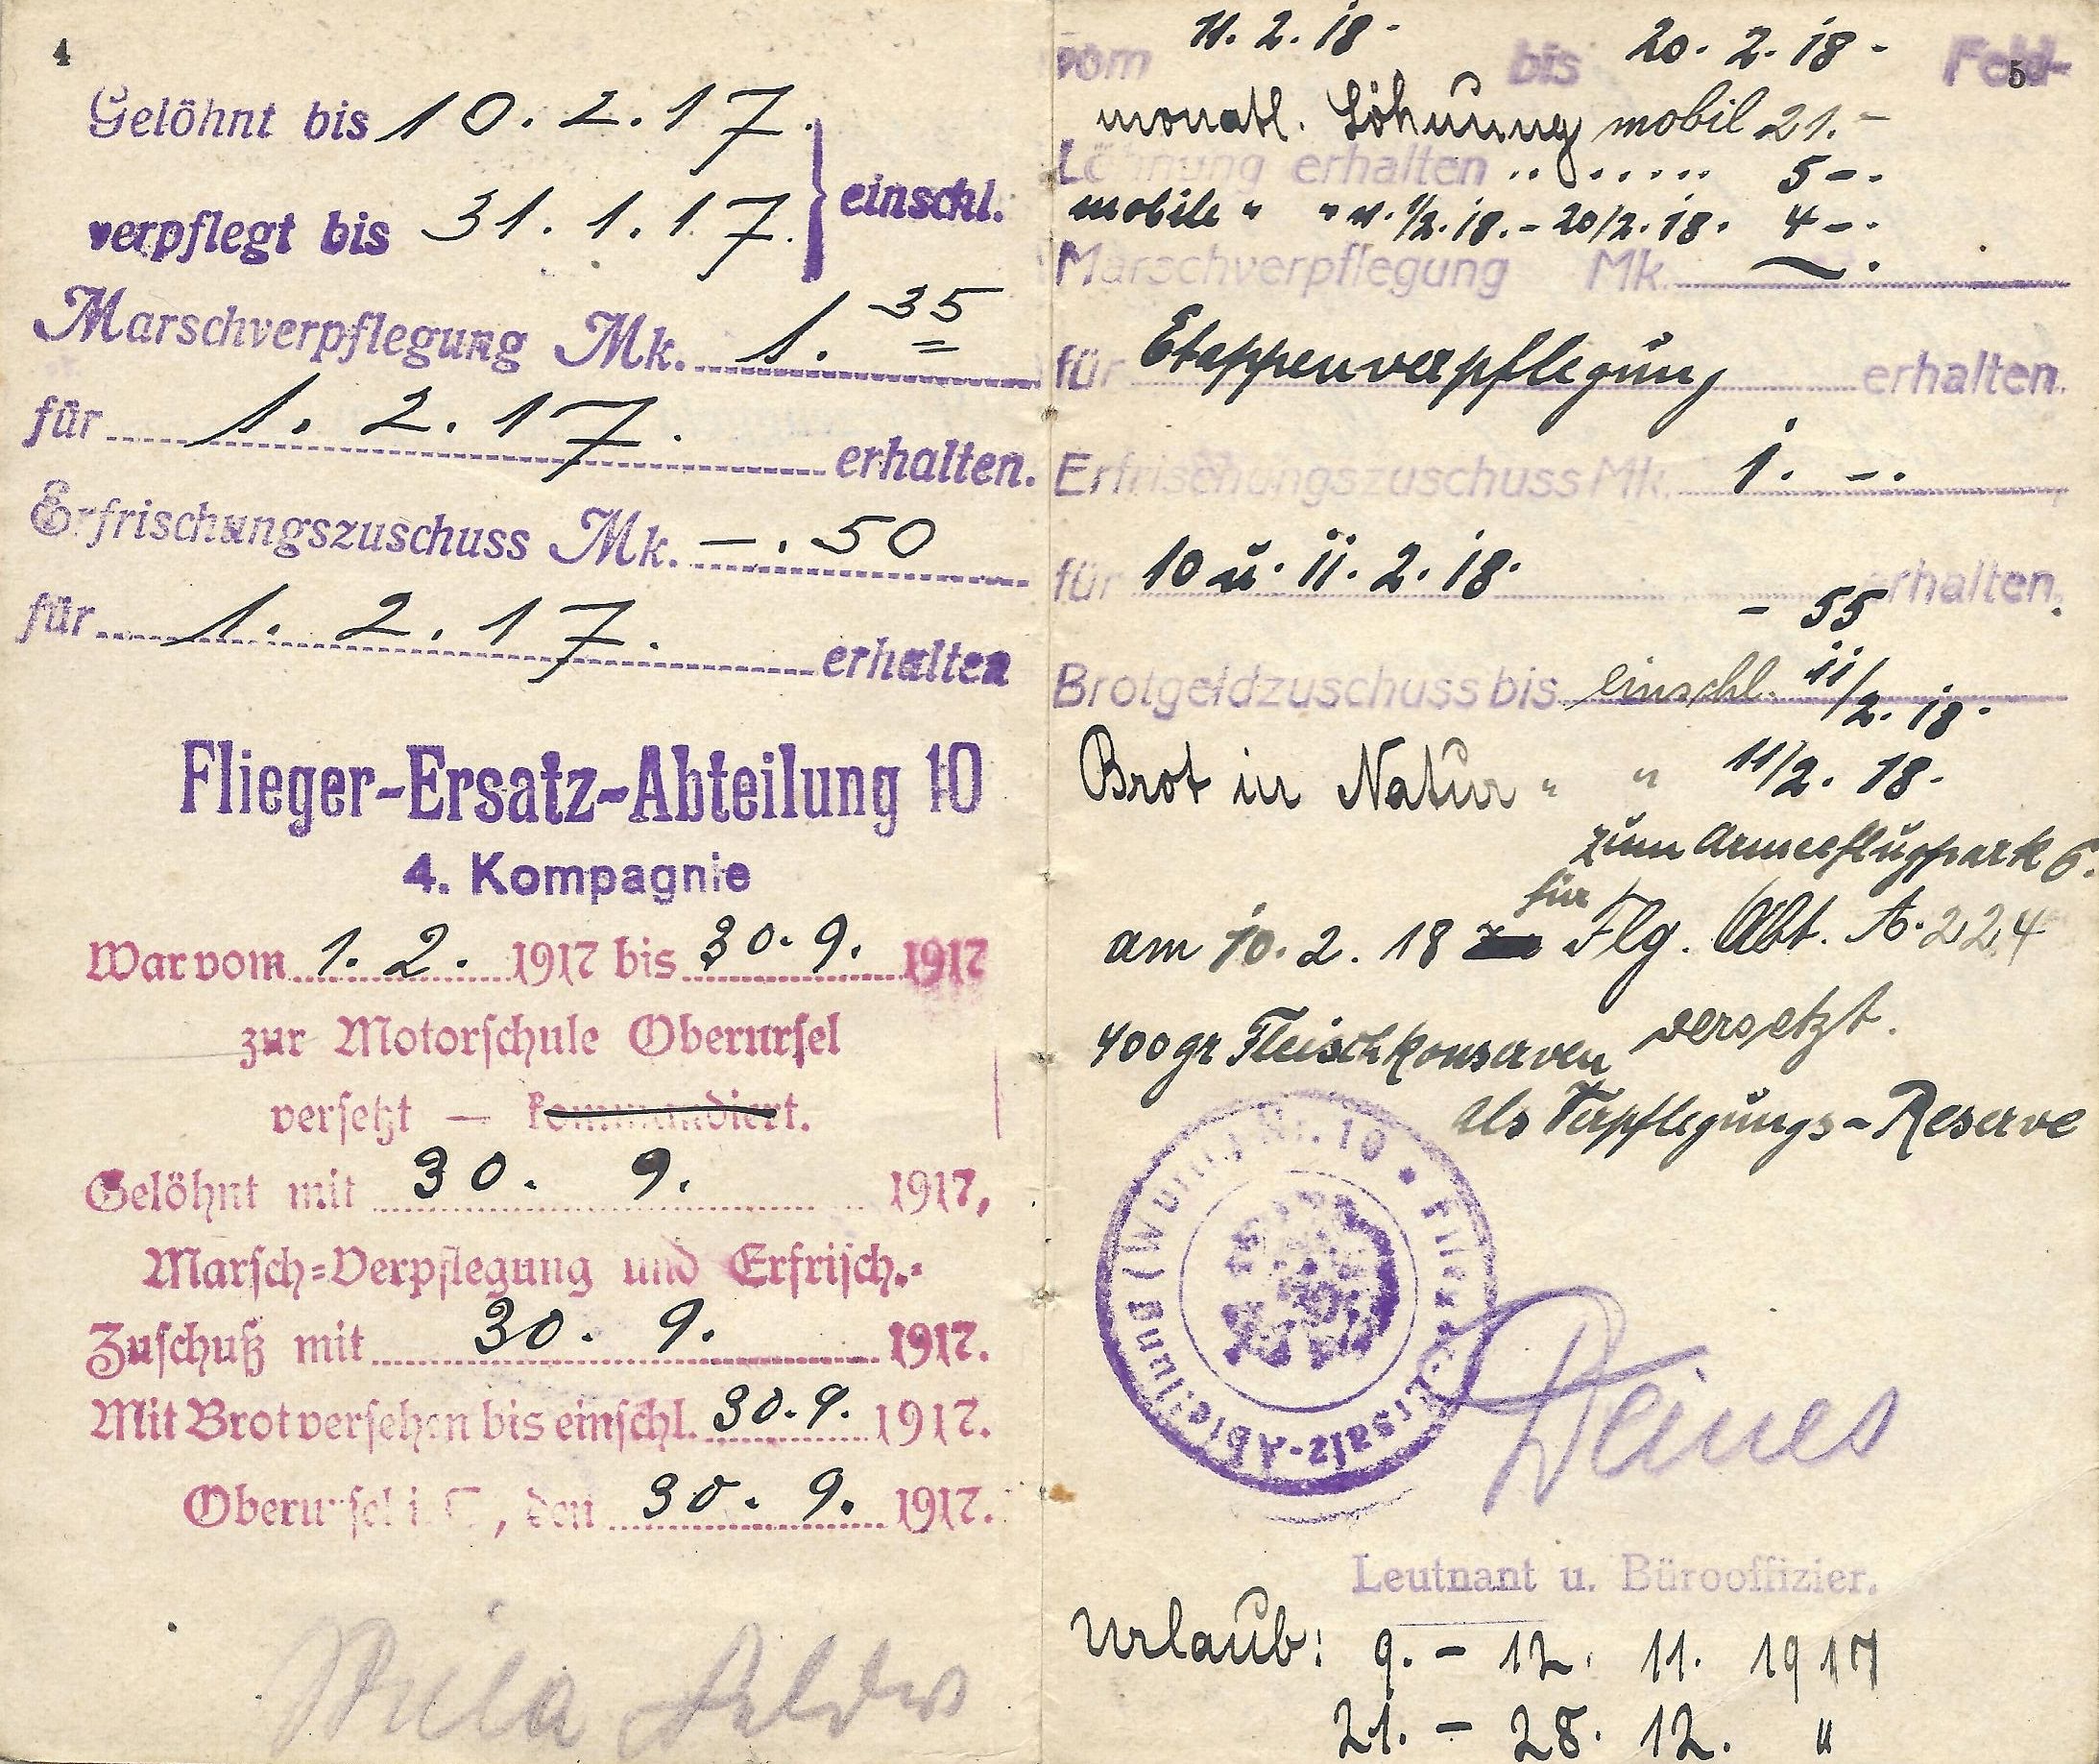 4
Gelöhnt bis 10.2.17.
verpflegt bis 31.1.17. } einschl.
Marschverpflegung Mk. 1.35
für 1.2.17. erhalten.
Erfrischungszuschuss Mk. —.50
für 1.2.17. erhalten
Flieger-Ersatz-Abteilung 10
4. Kompagnie
War vom 1.2. 1917 bis 30.9. 1917
zur Motorschule Oberursel
versetzt — kommandiert.
Gelöhnt mit 30. 9. 1917,
Marsch-Verpflegung und Erfrisch.-
Zuschuß mit 30. 9. 1917.
Mit Brot versehen bis einschl. 30.9. 1917.
Oberursel i. T., den 30. 9. 1917.
5
vom 11.2.18 - bis 20.2.18 - Feld-
monatl. Löhnung mobil 21.-
Löhnung erhalten 5 -.
mobile " " v. 11/2.18. - 20/2.18. 4 -.
Marschverpflegung Mk. —.
für Etappenverpflegung erhalten.
Erfrischungszuschuss Mk. 1. -.
für 10 u. 11.2.18. erhalten.
- 55
Brotgeldzuschuss bis einschl. 11/2.18.
Brot in Natur " " 11/2.18.
zum Armeeflugpark 6.
am 10.2.18 für Flg. Abt. A. 224
versetzt.
400 gr Fleischkonserven
als Verpflegungs-Reserve
Flieger-Ersatz-Abteilung Nr. 10
Leutnant u. Bürooffizier.
Urlaub: 9. - 12. 11. 1917
21. - 28. 12. "